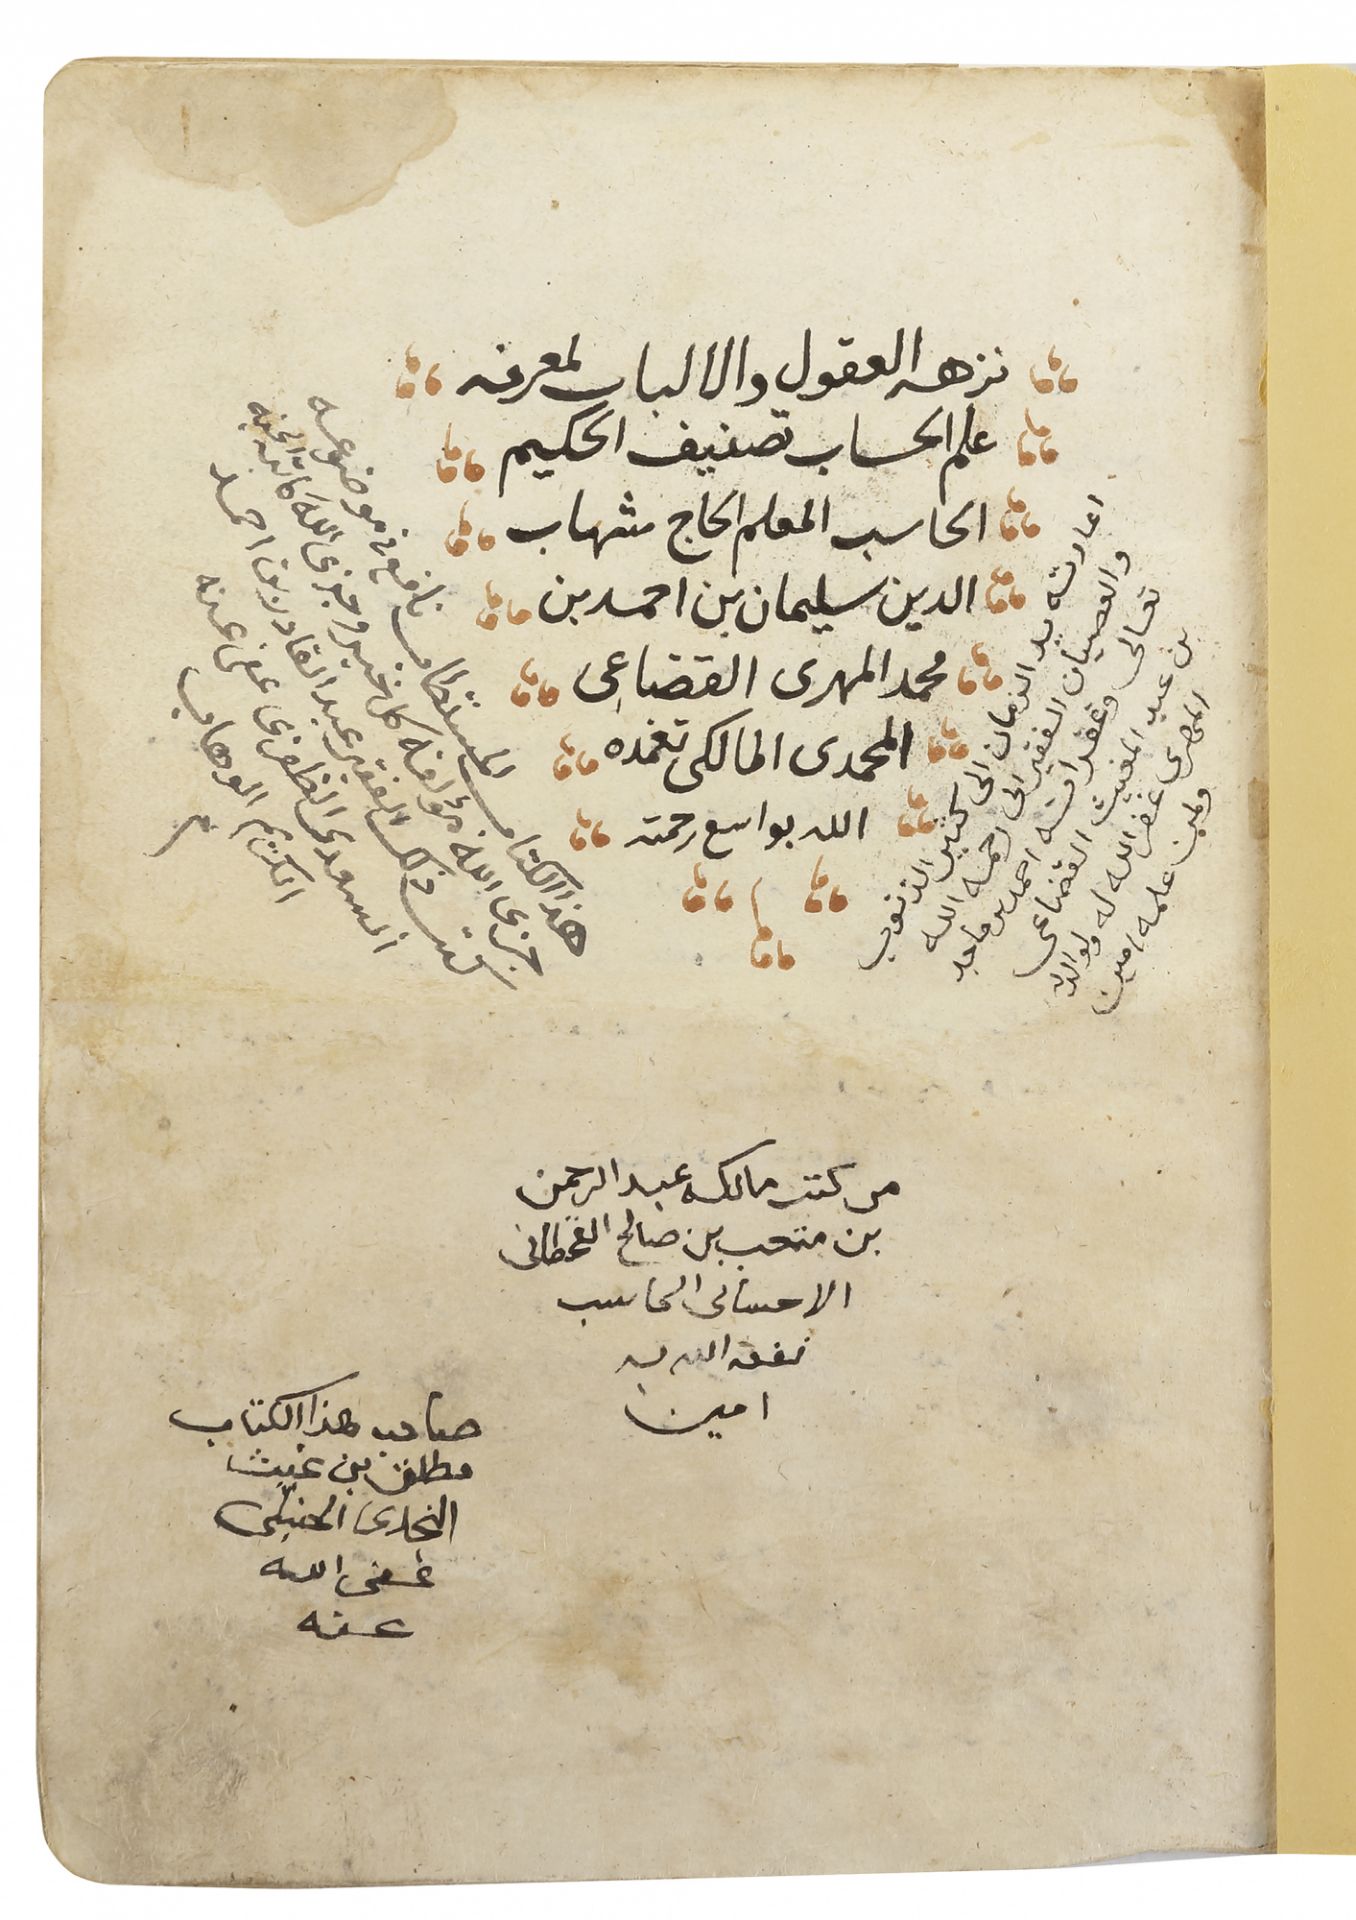 نزهه العقول والالباب لمعرفه
علم الحساب تصنيف الحكيم
الحاسب المعلم الحاج شهاب
الدين سليمان بن احمد بن
محمد المهرى القضاعى
المحمدى المالكى تغمده
الله بواسع رحمته
اعارته يد الزمان الى كثير الذنوب
والعصيان الفقير الى رحمه الله
تعالى وغفرانه احمد بن ماجد
بن عبد المغيث القضاعى
المصرى غفر الله له ولوالديه
ولمن علمه امين
هذا الكتاب المستطاب نافع فى موضوعه
جزى الله مؤلفه كل خير وجزى الله كاتبه الجنه
كتب ذلك الفقير عبد القادر بن احمد
السعدى الظفرى عفى عنه
الكريم الوهاب
م
من كتب مالكه عبد الرحمن
بن متعب بن صالح القحطانى
الاحسائى الحاسب
نفعه الله به
امين
صاحب هذا الكتاب
مطلق بن غيث
النجدى الحنبلى
عفى الله
عنه